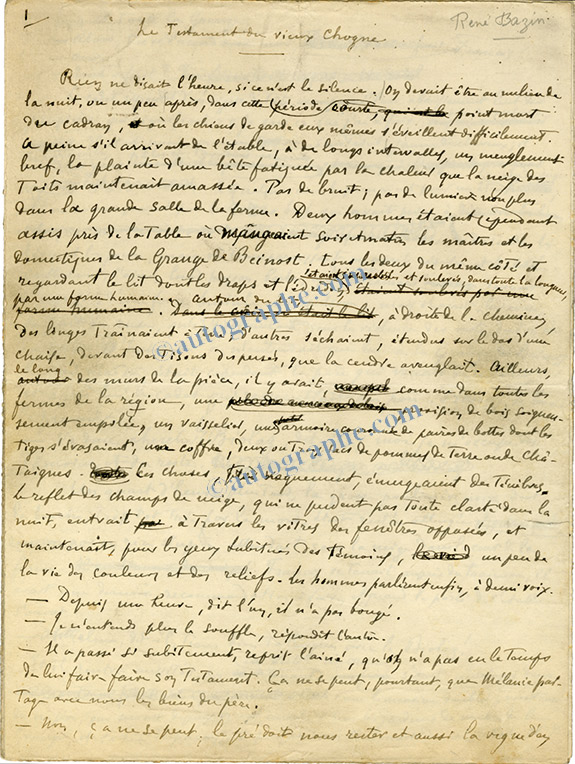 1
René Bazin
Le Testament du vieux Chogne
Rien ne disait l'heure, si ce n'est le silence. On devait être au milieu de
la nuit, ou un peu après, dans cette période courte, qui est le point mort
du cadran, et où les chiens de garde eux mêmes s'éveillent difficilement.
À peine s'il arrivait de l'étable, à de longs intervalles, un meuglement
bref, la plainte d'une bête fatiguée par la chaleur que la neige des
toits maintenait amassée. Pas de bruit ; pas de lumière non plus
dans la grande salle de la ferme. Deux hommes étaient cependant
assis près de la table où mangeaient soir et matin les maîtres et les
domestiques de la Grange de Beinost. tous les deux du même côté et
regardant le lit dont les draps et l'édredon, étaient soulevés pour une
et soulevés, dans toute la longueur,
par une forme humaine. autour du lit
forme humaine. Dans le lit, à droite de la cheminée,
des linges traînaient à terre, d'autres séchaient, étendus sur le dos d'une
chaise, devant des tisons dispersés, que la cendre aveuglait. Ailleurs,
le long
des murs de la pièce, il y avait, comme dans toutes les
fermes de la région, une provision de bois soigneu-
sement empilée, un vaisselier, une armoire de paires de bottes dont les
tiges s'évasaient, un coffre, deux ou trois sacs de pommes de terre ou de châ-
taignes. Ces choses, très vaguement, émergeaient des ténèbres.
le reflet des champs de neige, qui ne perdent pas toute clarté dans la
nuit, entrait à travers les vitres des fenêtres opposées, et
maintenait, pour les yeux habitués des témoins, un peu de
la vie des couleurs et des reliefs. les hommes parlèrent enfin, à demi voix.
— Depuis une heure, dit l'un, il n'a pas bougé.
— Je n'entends plus le souffle, répondit l'autre.
— Il a passé si subitement, reprit l'aîné, qu'on n'a pas eu le temps
de lui faire faire son testament. Ça ne se peut, pourtant, que Mélanie par-
tage avec nous les biens du père.
— Non, ça ne se peut ; le pré doit nous rester et aussi la vigne d'en
©autographe.com
©autographe.com
©autographe.com